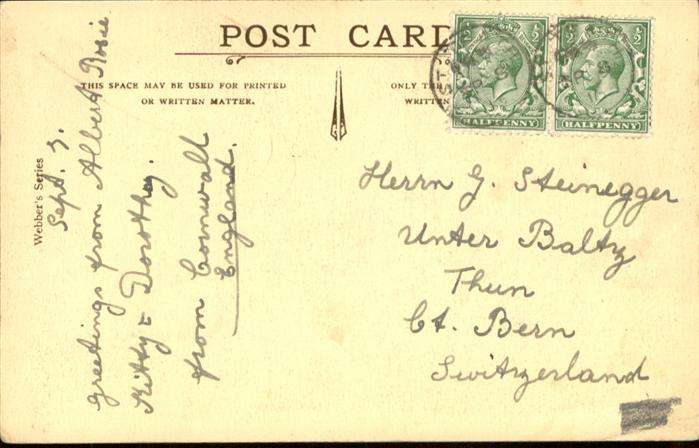 POST CARD
THIS SPACE MAY BE USED FOR PRINTED
OR WRITTEN MATTER.
ONLY THE
WRITTEN
Webber's Series
Sept. 3.
Greetings from Albert Rosie
Kitty = Dorothy.
from Cornwall
England.
½ ½
HALFPENNY
½ ½
HALFPENNY
Herrn G. Steinegger
Unter Baltz
Thun
Ct. Bern
Switzerland